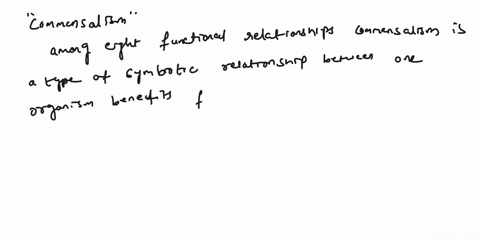 "Commensalism"
among eight functional relationships commensalism is
a type of symbotic relationship between one
organism benefits f